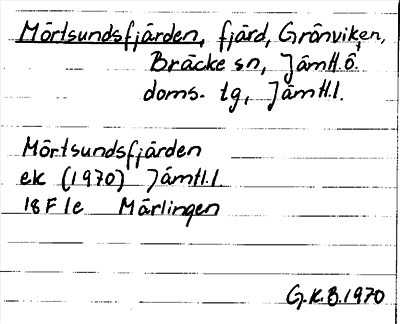 Mörtsundsfjärden, fjärd, Grönviken,
Bräcke sn, Jämtl. ö.
doms. tg, Jämtl.l.
Mörtsundsfjärden
ek (1970) Jämtl.l.
18F1e Märlingen
G.K.B.1970